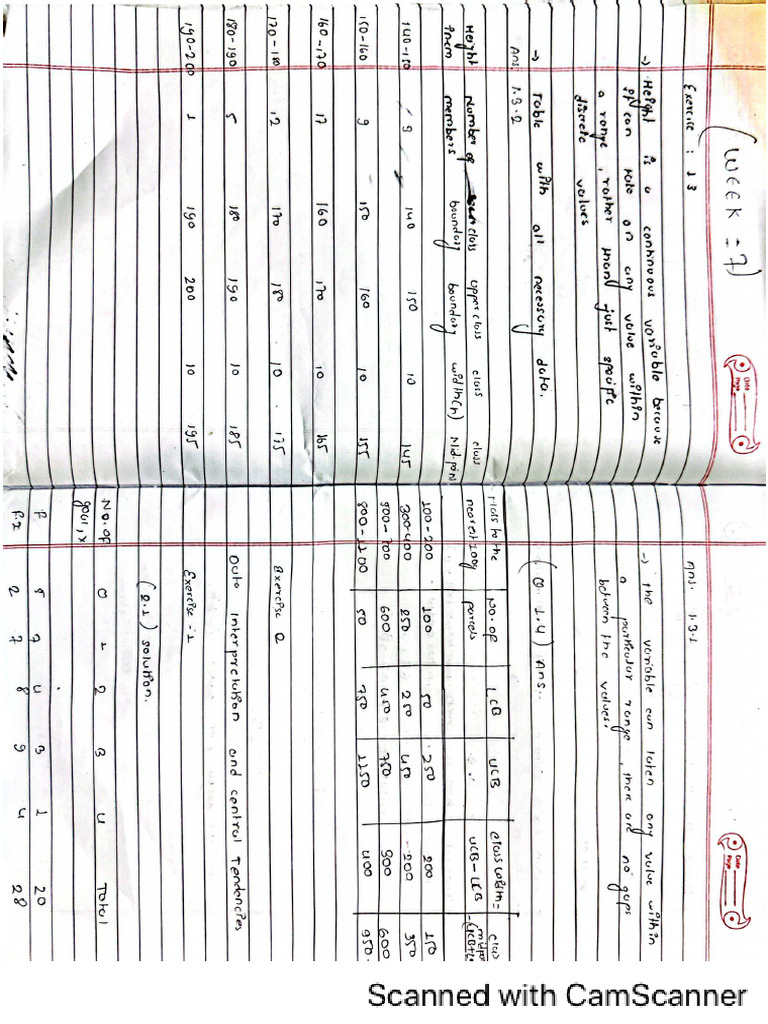 (WEEK = 7)
Exercise : 1.3
→ Height is a continuous variable because
it can take on any value within
a range, rather than just specific
discrete values
Ans: 1.3.2
→ Table with all necessary data.
Height Number of class upper class class class
members boundary boundary width(h) Mid.point
140-150 9 140 150 10 145
150-160 9 150 160 10 155
160-170 17 160 170 10 165
170-180 12 170 180 10 175
180-190 5 180 190 10 185
190-200 1 190 200 10 195
Date
Page
Ans. 1.3.1
→ the variable can taken any value within
a particular range, there are no gaps
between the values.
(Q. 1.4) Ans..
to the No. of LCB UCB class width =
nearest 100g parcels UCB - LCB
100-200 100 50 250 200 150
300-400 250 250 450 200 350
500-700 600 450 750 300 600
800-1100 50 750 1150 400 950
Exercise 2
Data Interpretation and central Tendencies
Exercise - 1
(2.1) solution.
No. of 0 1 2 3 4 Total
goal, x
f 5 7 4 3 1 20
f.x 2 7 8 9 4 28
Date
Page
Scanned with CamScanner